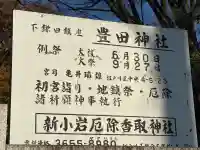 下鎌田鎮座
豊田神社
例祭 大祓 6月30日
大祭 9月27日
宮司 亀井
初宮詣り・地鎮祭・厄除
諸祈願神事執行
新小岩厄除香取神社
3655-8680